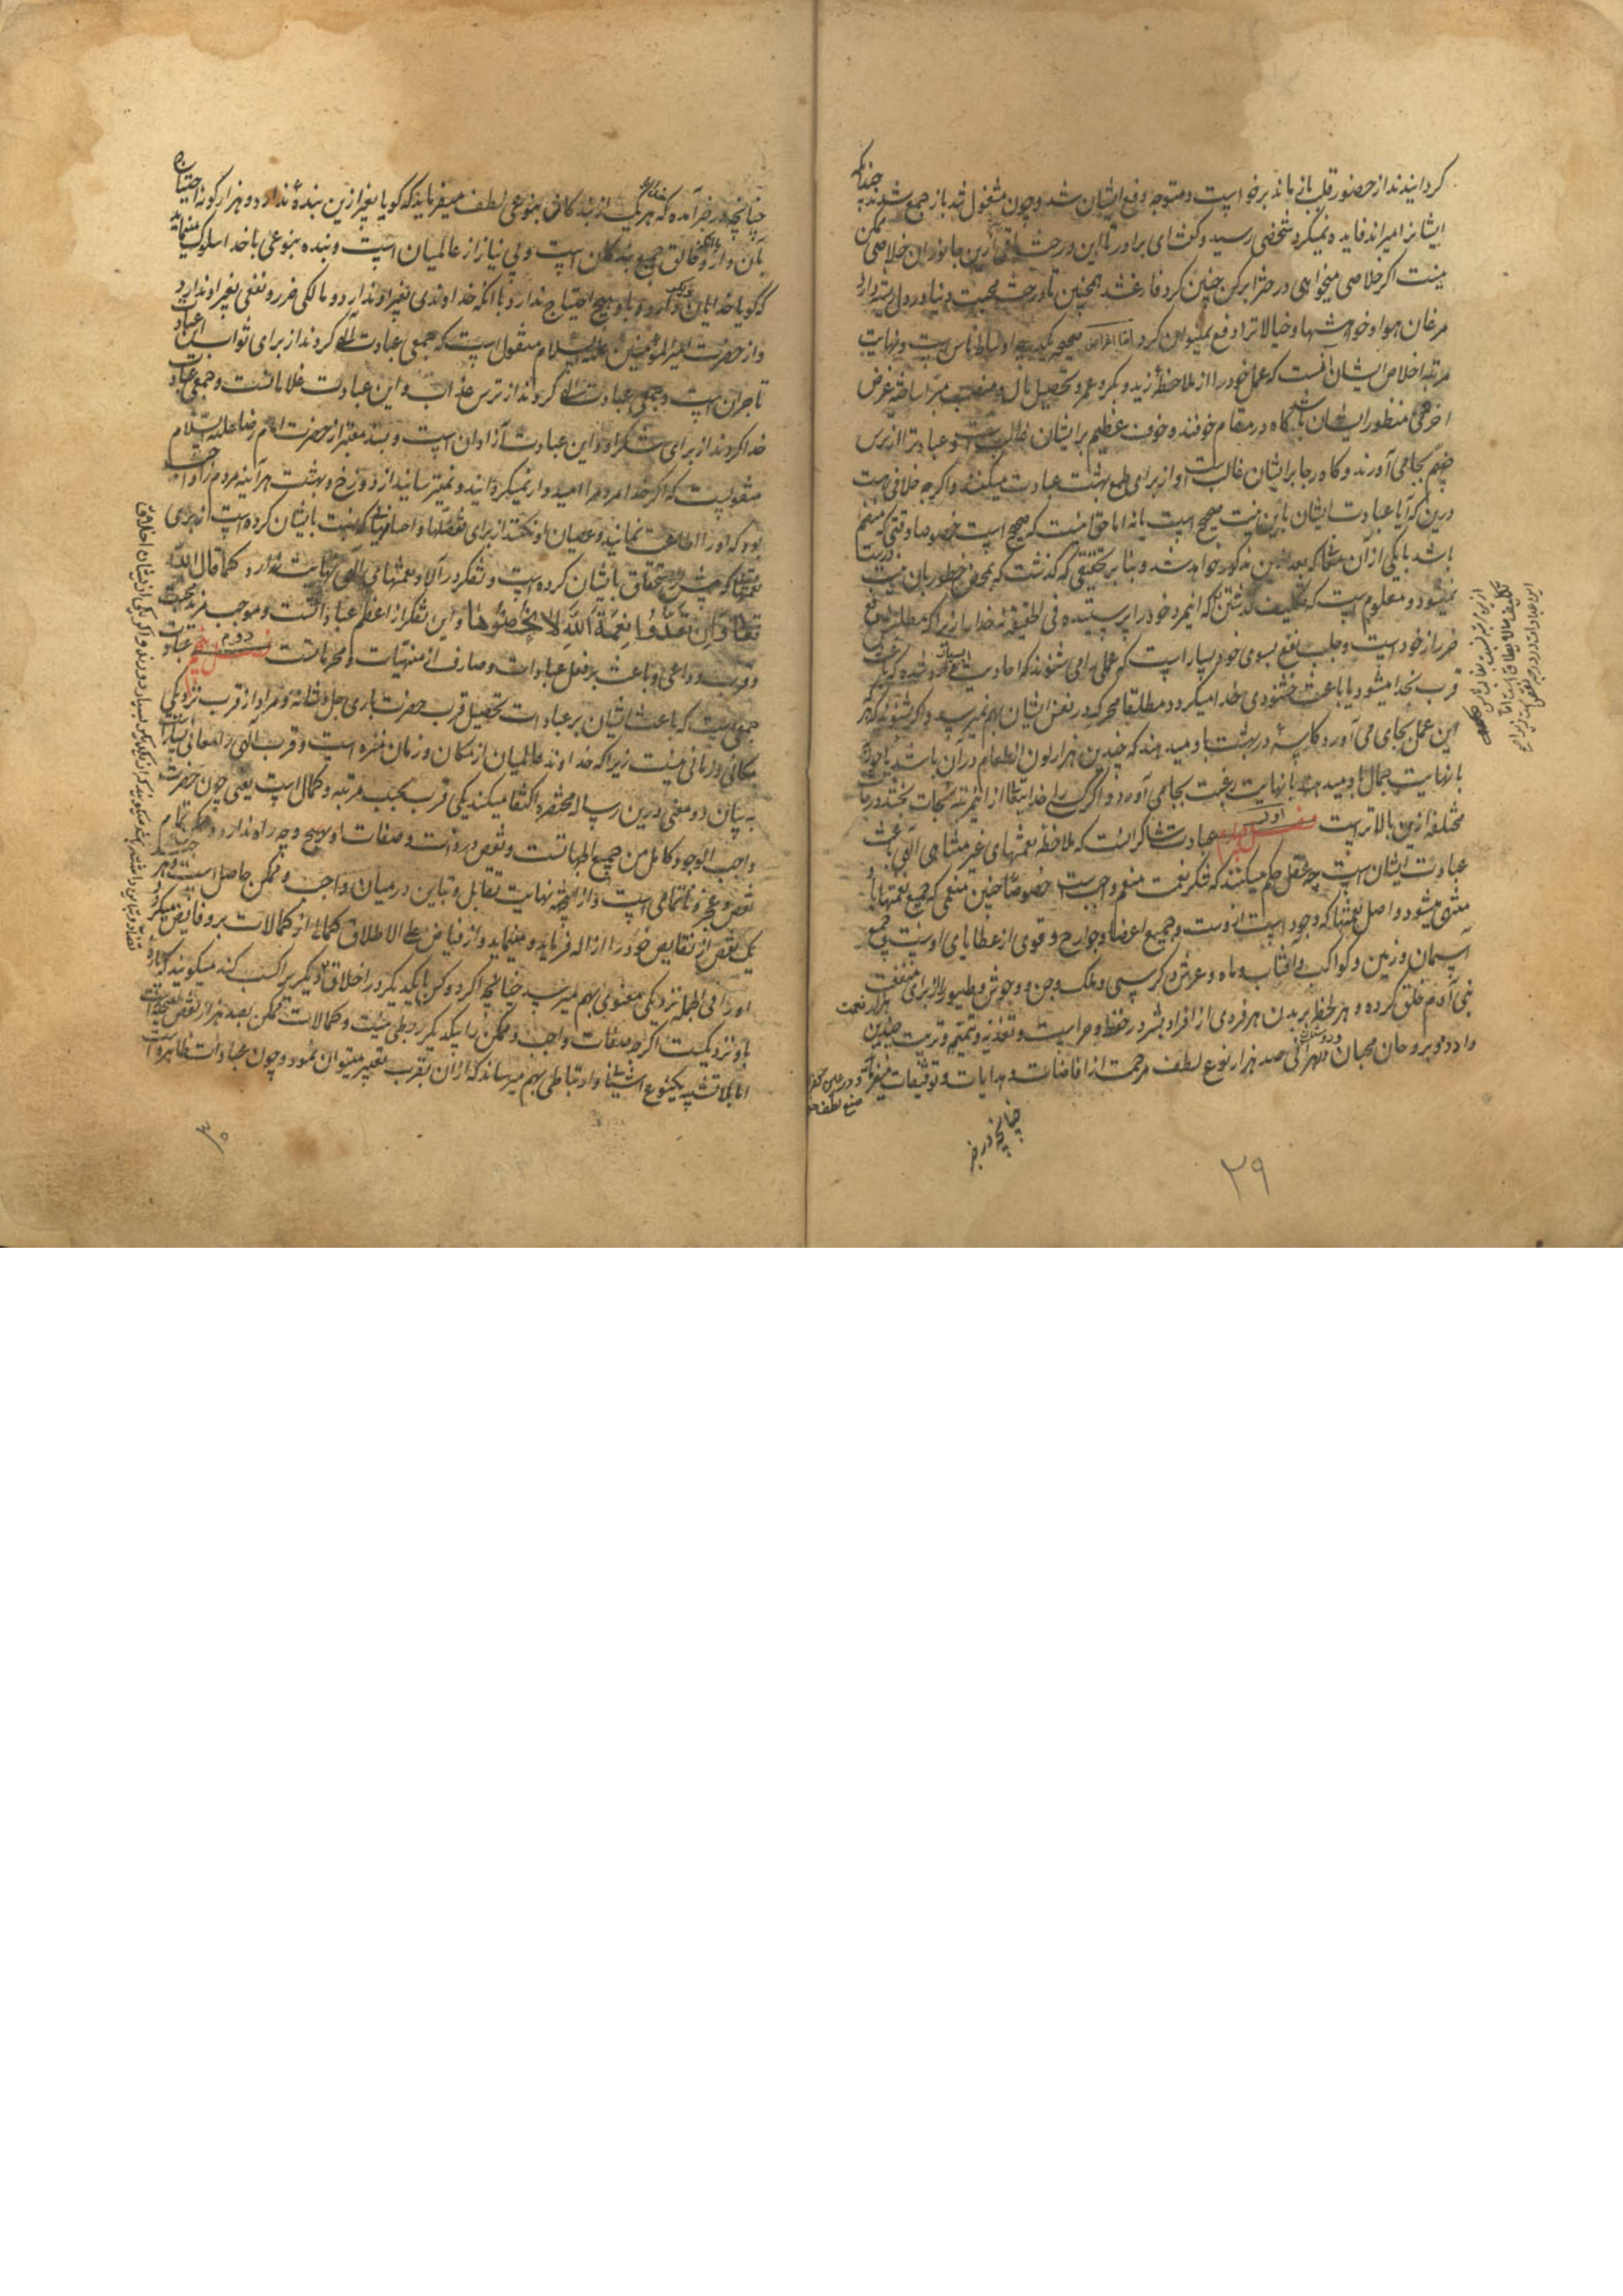 گردانیدند از حضور قلب باز ماند برخواست و متوجه دفع ایشان شد و چون مشغول شد باز جمع شدند چندانکه
ایشانرا میراند فایده نمیکرد شخصی رسید و گفت ای برادر تا این درخت باقیست ازین جانوران خلاصی ممکن
نیست اگر خلاصی میخواهی درخت را بر کن چنین کرد و فارغ شد همچنین تا درخت محبت دنیا در دل ریشه دارد
مرغان هوا و خواهشها و خیالات را دفع نمیتوان کرد اما اغراض صحیحه یکمرتبه اوساط ناس است و نهایت
مرتبه اخلاص ایشان آنست که عمل خود را از ملاحظه زید و بکر و عمرو و تحصیل مال و منصب مبرا ساخته غرض
اخروی منظور ایشان باشد گاه در مقام خوفند و خوف عظیم بر ایشان غالبست و عبادترا از ترس
جهنم بجا می آورند و گاه رجا بر ایشان غالبست و از برای طمع بهشت عبادت میکنند و اگرچه خلافی هست
درین که آیا عبادت ایشان باین نیت صحیح است یا نه اما حق اینست که صحیح است خصوصا وقتی که منضم
باشد با یکی از آن منشأها که بعد ازین مذکور خواهد شد و بنا بر تحقیقی که گذشت که بمحض خطور بال نیت
نمیشود و معلوم است که تکلیف گذشتن که اینمرد خود را پرستیده فی الحقیقه نه خدا را زیرا که مطلبش دفع
ضرر از خود است و جلب نفع بسوی خود بسیار است که عملی را می شنوند که احادیث بسیار وارد شده که باعث
قرب بخدا میشود یا باعث خشنودی خدا میگردد مطلقا محرکی در نفس ایشان بهم نمیرسد و اگر شنوند که هر که
این عمل بجای می آورد کاسه در بهشت باو میدهند که چندین هزار لون از طعام در آن باشد یا حوری
با نهایت جمال باو میدهند با نهایت رغبت بجا می آورد و اگر کسی را خدا یتعالی ازین مرتبه نجات بخشد درجات
مختلفه ازین بالاتر است اول عبادت شاکرانست که ملاحظه نعمتهای غیر متناهی الهی باعث
عبادت ایشان است چه عقل حکم میکند که شکر نعمت منعم واجب است خصوصا چنین منعمی که جمیع نعمتها باو
منتهی میشود و اصل نعمتها که وجود است ازوست و جمیع اعضا و جوارح و قوی از عطایای اوست و جمیع
آسمان و زمین و کواکب و آفتاب و ماه و عرش و کرسی و ملک و جن و وحوش و طیور را از برای منفعت
بنی آدم خلق کرده و هر لحظه بر بدن هر فردی از افراد بشر در حفظ و حراست و تغذیه و تنمیه و تربیت چندین هزار نعمت
دارد و بر روحان محبان و دوستان هر آنی صد هزار نوع لطف و مرحمت از افاضات و هدایات و توفیقات میفرماید
چنانچه در خبر
۲۹
چنانچه در خبر آمده که هر یک از بندگان بنوعی لطف میفرماید که گویا بغیر ازین بنده ندارد و هزار گونه احتیاج
بآن دارد و خالق جمیع بندگان است و بی نیاز از عالمیان است و بنده بنوعی با خدا سلوک مینماید
که گویا خدایان دیگر دارد و باو هیچ احتیاج ندارد با آنکه خداوندی بغیر او ندارد و مالکی ضرر و نفعی بغیر او ندارد
و از حضرت امیر المؤمنین علیه السلام منقول است که جمعی عبادت الهی کردند از برای ثواب این عبادت
تاجران است و جمعی عبادت الهی کردند از ترس عذاب و این عبادت غلامانست و جمعی عبادت
خدا کردند از برای شکر او و این عبادت آزادان است و بسند معتبر از حضرت امام رضا علیه السلام
منقولست که اگر خدا مردم را امیدوار نمیگردانید و نمیترسانید از دوزخ و بهشت هر آینه مردم را واجب
بود که او را اطاعت نمایند و عصیان او نکنند از برای تفضلها و احسانها که نسبت بایشان کرده است از برای
نعمتها که پیش از استحقاق بایشان کرده است و تفکر در آلا و نعمتهای الهی نهایت ندارد کما قال الله
تعالی وَاِن تَعُدُّوا نِعْمَةَ اللهِ لا تُحْصُوها و این تفکر از اعظم عباداتست و موجب مزید محبت
و قرب و داعی و باعث بر فعل عبادات و صارف از منهیات و محرماتست دوم عبادت
جمعیست که باعث ایشان بر عبادات تحصیل قرب حضرت باری جل شانه و مراد از قرب نزدیکی
مکانی و زمانی نیست زیرا که خداوند عالمیان از مکان و زمان منزه است و قرب الهی را معانی بسیار است
به بیان دو معنی درین رساله مختصره اکتفا میکند یکی قرب بحسب مرتبه و کمال است یعنی چون حضرت
واجب الوجود کامل من جمیع الجهاتست و نقص در ذات و صفات او بهیچ وجه راه ندارد و ممکن تمام
نقص و عجز و ناتمامی است و ازین جهت نهایت تقابل و تباین در میان واجب و ممکن حاصل است و هر
یک نقص از نقایص خود را ازاله فرماید و مینماید و از فیاض علی الاطلاق کمالی از کمالات برو فایض میگردد
او را فی الجمله نزدیکی معنوی بهم میرسد چنانچه اگر دو کس با یکدیگر در اخلاق دیگری را کسب کند میگویند که پاره
باو نزدیکست اگرچه صفات واجب و ممکن را بیکدیگر ربطی نیست و کمالات ممکن بعد هزار نقص
اما بلاتشبیه یکنوع آشنا و ارتباطی بهم میرساند که از آن بتقرب تعبیر میتوان نمود و چون عبادات ظاهره
۳۰